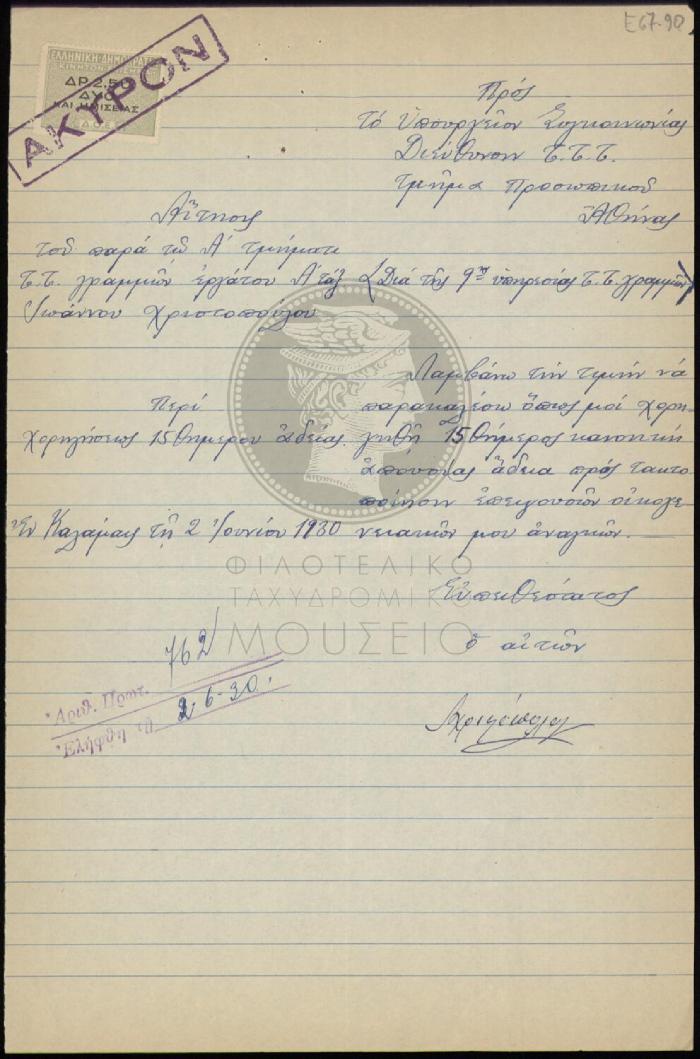 Ε67-90
ΕΛΛΗΝΙΚΗ ΔΗΜΟΚΡΑΤΙΑ
ΔΡ. 2.50
ΔΥΟ
ΚΑΙ ΗΜΙΣΕΙΑΣ
Δ.Ο.Ε.
ΑΚΥΡΟΝ
Πρός
τό Ὑπουργεῖον Συγκοινωνίας
Διεύθυνσιν Τ.Τ.Τ.
τμῆμα Προσωπικοῦ
Ἀθήνας
Αἴτησις
τοῦ παρά τῶ Α' τμήματι
Τ.Τ. γραμμῶν ἐργάτου Α' τάξ
Ἰωάννου Χριστοπούλου
(Διά τῆς 9ης ὑπηρεσίας Τ.Τ. γραμμῶν)
Περί
χορηγήσεως 15θημέρου ἀδείας.
Ἐν Καλάμαις τῇ 2 Ἰουνίου 1930
Λαμβάνω τήν τιμήν νά
παρακαλέσω ὅπως μοί χορη-
γηθῇ 15θήμερος κανονική
ἀπουσίας ἄδεια πρός τακτο
ποίησιν ἐπειγουσῶν οἰκογε
νειακῶν μου ἀναγκῶν.
Εὐπειθέστατος
ὁ αἰτῶν
ΦΙΛΟΤΕΛΙΚΟ
ΤΑΧΥΔΡΟΜΙΚΟ
ΜΟΥΣΕΙΟ
Ἀριθ. Πρωτ. 762
Ἐλήφθη τῇ 2-6-30.